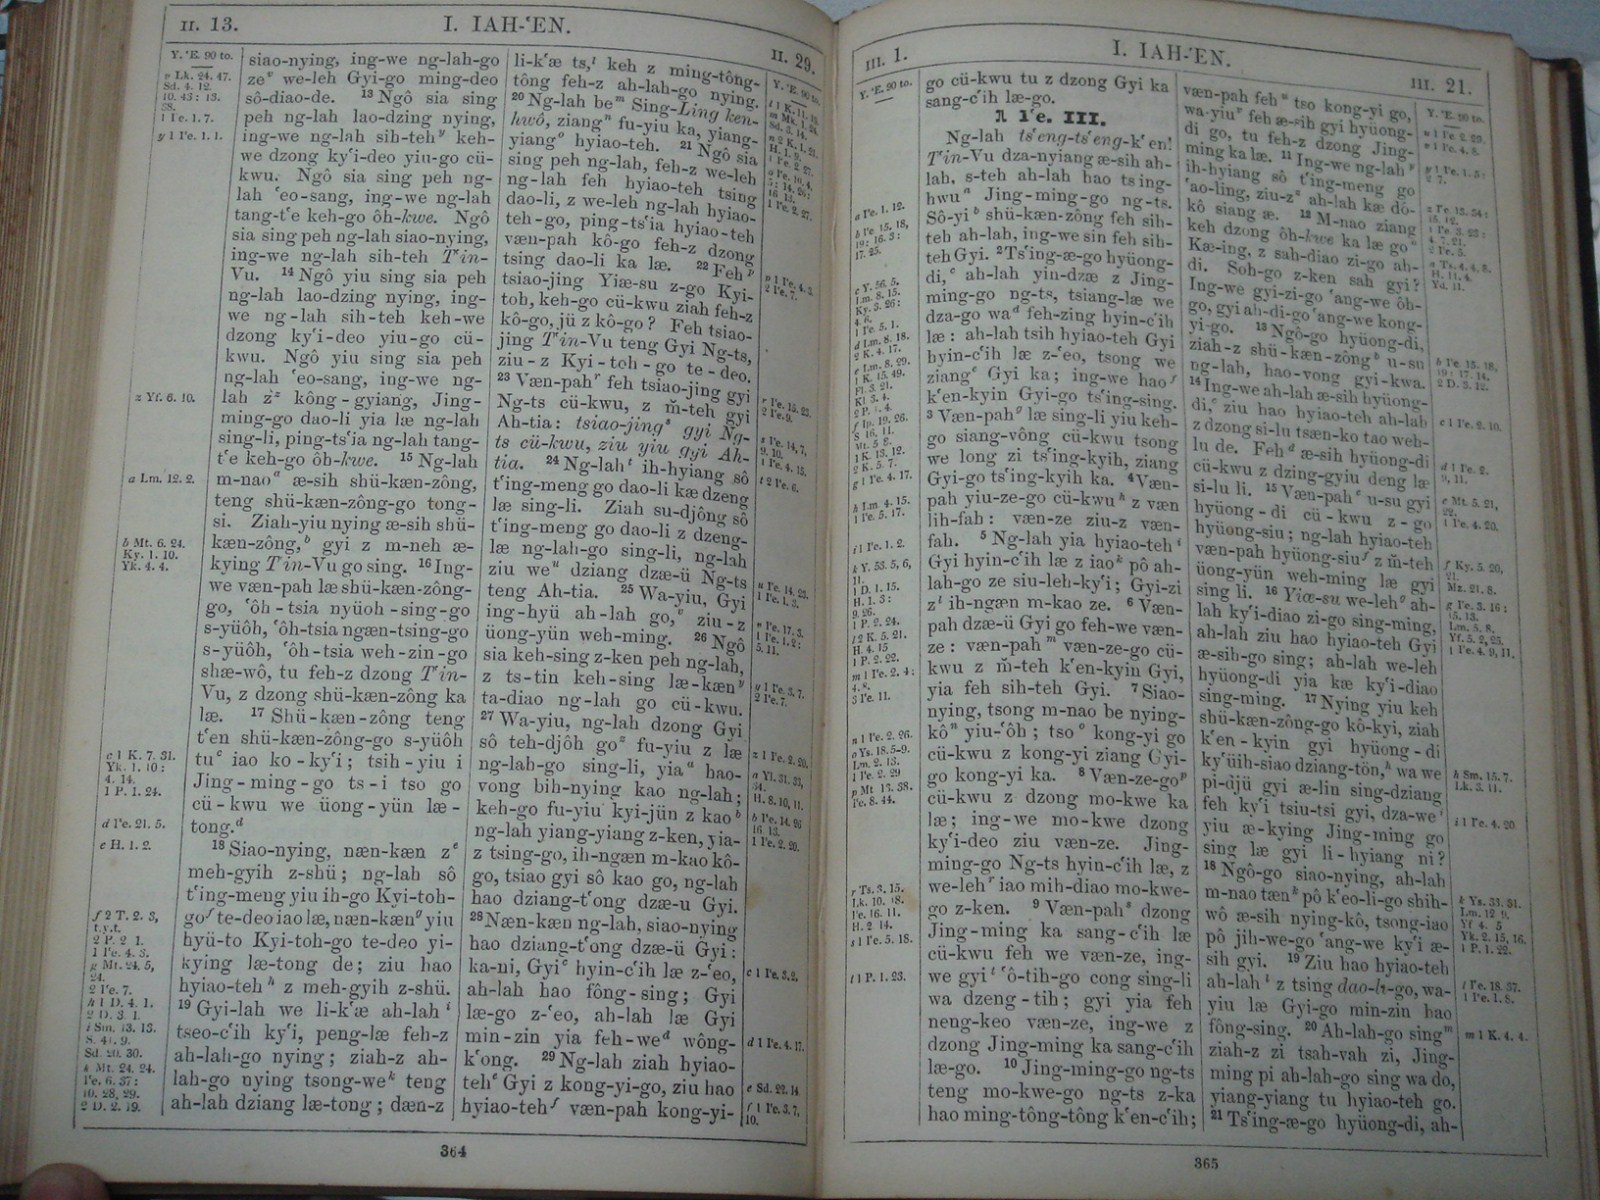 II. 13.
I. IAH-ʻEN.
II. 29.
Y. ʻE. 90 to.
v Lk. 24. 47.
Sd. 4. 12.
10. 43: 13.
38.
1 Iʻe. 1. 7.
y 1 Iʻe. 1. 1.
z Yf. 6. 10.
a Lm. 12. 2.
b Mt. 6. 24.
Ky. 1. 10.
Yk. 4. 4.
c 1 K. 7. 31.
Yk. 1. 10:
4. 14.
1 P. 1. 24.
d Iʻe. 21. 5.
e H. 1. 2.
f 2 T. 2. 3,
t.y.t.
2 P. 2 1.
1 Iʻe. 4. 3.
g Mt. 24. 5,
24.
2 Iʻe. 7.
h 1 D. 4. 1.
2 D. 3. 1.
i Sm. 13. 13.
S. 41. 9.
Sd. 20. 30.
k Mt. 24. 24.
Iʻe. 6. 37:
10. 28, 29.
2 D. 2. 19.
siao-nying, ing-we ng-lah-go
ze we-leh Gyi-go ming-deo
sô-diao-de. 13 Ngô sia sing
peh ng-lah lao-dzing nying,
ing-we ng-lah sih-teh y keh-
we dzong kyʻi-deo yiu-go cü-
kwu. Ngô sia sing peh ng-
lah ʻeo-sang, ing-we ng-lah
tang-tʻe keh-go ôh-kwe. Ngô
sia sing peh ng-lah siao-nying,
ing-we ng-lah sih-teh Tʻin-
Vu. 14 Ngô yiu sing sia peh
ng-lah lao-dzing nying, ing-
we ng-lah sih-teh keh-we
dzong kyʻi-deo yiu-go cü-
kwu. Ngô yiu sing sia peh
ng-lah ʻeo-sang, ing-we ng-
lah z z kông-gyiang, Jing-
ming-go dao-li yia læ ng-lah
sing-li, ping-tsʻia ng-lah tang-
tʻe keh-go ôh-kwe. 15 Ng-lah
m-nao a æ-sih shü-kæn-zông,
teng shü-kæn-zông-go tong-
si. Ziah-yiu nying æ-sih shü-
kæn-zông, b gyi z m-neh æ-
kying Tʻin-Vu go sing. 16 Ing-
we væn-pah læ shü-kæn-zông-
go, ʻôh-tsia nyüoh-sing-go
s-yüôh, ʻôh-tsia ngæn-tsing-go
s-yüôh, ʻôh-tsia weh-zin-go
shæ-wô, tu feh-z dzong Tʻin-
Vu, z dzong shü-kæn-zông ka
læ. 17 Shü-kæn-zông teng
tʻen shü-kæn-zông-go s-yüôh
tu c iao ko-kyʻi; tsih-yiu i
Jing-ming-go ts-i tso go
cü-kwu we üong-yün læ-
tong. d
18 Siao-nying, næn-kæn z e
meh-gyih z-shü; ng-lah sô
tʻing-meng yiu ih-go Kyi-toh-
go f te-deo iao læ, næn-kæn g yiu
hyü-to Kyi-toh-go te-deo yi-
kying læ-tong de; ziu hao
hyiao-teh h z meh-gyih z-shü.
19 Gyi-lah we li-kʻæ ah-lah i
tseo-cʻih kyʻi, peng-læ feh-z
ah-lah-go nying; ziah-z ah-
lah-go nying tsong-we k teng
ah-lah dziang læ-tong; dæn-z
li-kʻæ ts, l keh z ming-tông-
tông feh-z ah-lah-go nying.
20 Ng-lah be m Sing-Ling ken-
hwô, ziang n fu-yiu ka, yiang-
yiang o hyiao-teh. 21 Ngô sia
sing peh ng-lah, feh-z we-leh
ng-lah feh hyiao-teh tsing
dao-li, z we-leh ng-lah hyiao-
teh-go, ping-tsʻia hyiao-teh
væn-pah kô-go feh-z dzong
tsing dao-li ka læ. 22 Feh p
tsiao-jing Yiæ-su z-go Kyi-
toh, keh-go cü-kwu ziah feh-z
kô-go, jü z kô-go? Feh tsiao-
jing Tʻin-Vu teng Gyi Ng-ts,
ziu-z Kyi-toh-go te-deo.
23 Væn-pah r feh tsiao-jing gyi
Ng-ts cü-kwu, z m̆-teh gyi
Ah-tia: tsiao-jing s gyi Ng-
ts cü-kwu, ziu yiu gyi Ah-
tia. 24 Ng-lah t ih-hyiang sô
tʻing-meng go dao-li kæ dzeng
læ sing-li. Ziah su-djông sô
tʻing-meng go dao-li z dzeng-
læ ng-lah-go sing-li, ng-lah
ziu we u dziang dzæ-ü Ng-ts
teng Ah-tia. 25 Wa-yiu, Gyi
ing-hyü ah-lah go, v ziu-z
üong-yün weh-ming. 26 Ngô
sia keh-sing z-ken peh ng-lah,
z ts-tin keh-sing læ-kæn y
ta-diao ng-lah go cü-kwu.
27 Wa-yiu, ng-lah dzong Gyi
sô teh-djôh go z fu-yiu z læ
ng-lah-go sing-li, yia a hao-
vong bih-nying kao ng-lah;
keh-go fu-yiu kyi-jün z kao b
ng-lah yiang-yiang z-ken, yia-
z tsing-go, ih-ngæn m-kao kô-
go, tsiao gyi sô kao go, ng-lah
hao dziang-tʻong dzæ-u Gyi.
28 Næn-kæn ng-lah, siao-nying
hao dziang-tʻong dzæ-ü Gyi:
ka-ni, Gyi c hyin-cʻih læ z-ʻeo,
ah-lah hao fông-sing; Gyi
læ-go z-ʻeo, ah-lah læ Gyi
min-zin yia feh-we d wông-
kʻong. 29 Ng-lah ziah hyiao-
teh e Gyi z kong-yi-go, ziu hao
hyiao-teh f væn-pah kong-yi-
Y. ʻE. 90 to.
p 1 Iʻe. 4. 3.
2 Iʻe. 7.
r Iʻe. 15. 23.
2 Iʻe. 9.
s Iʻe. 14. 7,
9. 10.
1 Iʻe. 4. 15.
t 2 Iʻe. 6.
u Iʻe. 14. 23.
1 Iʻe. 1. 3.
v Iʻe. 17. 3.
1 Iʻe. 1. 2:
5. 11.
y 1 Iʻe. 3. 7.
2 Iʻe. 7.
z 1 Iʻe. 2. 20.
a Yl. 31. 33,
34.
H. 8. 10, 11.
b Iʻe. 14. 26
16. 13.
1 Iʻe. 2. 20.
c 1 Iʻe. 3. 2.
d 1 Iʻe. 4. 17.
e Sd. 22. 14
f 1 Iʻe. 3. 7,
10.
364
III. 1.
I. IAH-ʻEN.
III. 21.
Y. ʻE. 90 to.
a Iʻe. 1. 12.
b Iʻe. 15. 18,
19: 16. 3:
17. 25.
c Y. 56. 5.
Lm. 8. 15.
Ky. 3. 26:
4. 6.
1 Iʻe. 5. 1.
d Lm. 8. 18.
2 K. 4. 17.
e Lm. 8. 29.
1 K. 15. 49.
Fl. 3. 21.
Kl 3. 4.
2 P. 1. 4.
1 K. 13. 12.
2 K. 5. 7.
g 1 Iʻe. 4. 17.
h Lm. 4. 15.
1 Iʻe. 5. 17.
i 1 Iʻe. 1. 2.
k Y. 53. 5, 6,
11.
1 D. 1. 15.
H. 1. 3:
9. 26.
1 P. 2. 24.
l 2 K. 5. 21.
H. 4. 15
1 P. 2. 22.
m 1 Iʻe. 2. 4:
4. 8.
3 Iʻe. 11.
n 1 Iʻe. 2. 26.
o Ys. 18. 5-9.
Lm. 2. 13.
1 Iʻe. 2. 29
p Mt 13. 38.
Iʻe. 8. 44.
r Ts. 3. 15.
Lk. 10. 18.
Iʻe. 16. 11.
H. 2 14.
s 1 Iʻe. 5. 18.
t 1 P. 1. 23.
go cü-kwu tu z dzong Gyi ka
sang-cʻih læ-go.
Iʻe. III.
Ng-lah tsʻeng-tsʻeng-kʻen!
Tʻin-Vu dza-nyiang æ-sih ah-
lah, s-teh ah-lah hao tsing-
hwu a Jing-ming-go ng-ts.
Sô-yi b shü-kæn-zông feh sih-
teh ah-lah, ing-we sin feh sih-
teh Gyi. 2 Tsʻing-æ-go hyüong-
di, c ah-lah yin-dzæ z Jing-
ming-go ng-ts, tsiang-læ we
dza-go wa d feh-zing hyin-cʻih
læ: ah-lah tsih hyiao-teh Gyi
hyin-cʻih læ z-ʻeo, tsong we
ziang e Gyi ka; ing-we hao f
kʻen-kyin Gyi-go tsʻing-sing.
3 Væn-pah g læ sing-li yiu keh-
go siang-vông cü-kwu tsong
we long zi tsʻing-kyih, ziang
Gyi-go tsʻing-kyih ka. 4 Væn-
pah yiu-ze-go cü-kwu h z væn
lih-fah: væn-ze ziu-z væn-
fah. 5 Ng-lah yia hyiao-teh i
Gyi hyin-cʻih læ z iao k pô ah-
lah-go ze siu-leh-kyʻi; Gyi-zi
z l ih-ngæn m-kao ze. 6 Væn-
pah dzæ-ü Gyi go feh-we væn-
ze: væn-pah m væn-ze-go cü-
kwu z m̆-teh kʻen-kyin Gyi,
yia feh sih-teh Gyi. 7 Siao-
nying, tsong m-nao be nying-
kô n yiu-ʻôh; tso o kong-yi go
cü-kwu z kong-yi ziang Gyi-
go kong-yi ka. 8 Væn-ze-go p
cü-kwu z dzong mo-kwe ka
læ; ing-we mo-kwe dzong
kyʻi-deo ziu væn-ze. Jing-
ming-go Ng-ts hyin-cʻih læ, z
we-leh r iao mih-diao mo-kwe-
go z-ken. 9 Væn-pah s dzong
Jing-ming ka sang-cʻih læ
cü-kwu feh we væn-ze, ing-
we gyi t ʻô-tih-go cong sing-li
wa dzeng-tih; gyi yia feh
neng-keo væn-ze, ing-we z
dzong Jing-ming ka sang-cʻih
læ-go. 10 Jing-ming-go ng-ts
teng mo-kwe-go ng-ts z-ka
hao ming-tông-tông kʻen-cʻih;
væn-pah feh u tso kong-yi go,
wa-yiu v feh æ-sih gyi hyüong-
di go, tu feh-z dzong Jing-
ming ka læ. 11 Ing-we ng-lah y
ih-hyiang sô tʻing-meng go
ʻao-ling, ziu-z z ah-lah kæ dô-
kô siang æ. 12 M-nao ziang
keh dzong ôh-kwe ka læ go a
Kæ-ing, z sah-diao zi-go ah-
di. Soh-go z-ken sah gyi?
Ing-we gyi-zi-go ʻang-we ôh-
go, gyi ah-di-go ʻang-we kong-
yi-go. 13 Ngô-go hyüong-di,
ziah-z shü-kæn-zông b u-su
ng-lah, hao-vong gyi-kwa.
14 Ing-we ah-lah æ-sih hyüong-
di, c ziu hao hyiao-teh ah-lah
z dzong si-lu tsæn-ko tao weh-
lu de. Feh d æ-sih hyüong-di
cü-kwu z dzing-gyiu deng læ
si-lu li. 15 Væn-pah e u-su gyi
hyüong-di cü-kwu z-go
hyüong-siu; ng-lah hyiao-teh
væn-pah hyüong-siu f z m̆-teh
üong-yün weh-ming læ gyi
sing li. 16 Yiæ-su we-leh g ah-
lah kyʻi-diao zi-go sing-ming,
ah-lah ziu hao hyiao-teh Gyi
æ-sih-go sing; ah-lah we-leh
hyüong-di yia kæ kyʻi-diao
sing-ming. 17 Nying yiu keh
shü-kæn-zông-go kô-kyi, ziah
kʻen-kyin gyi hyüong-di
kyʻüih-siao dziang-tön, h wa we
pi-djü gyi æ-lin sing-dziang
feh kyʻi tsiu-tsi gyi, dza-we i
yiu æ-kying Jing-ming go
sing læ gyi li-hyiang ni?
18 Ngô-go siao-nying, ah-lah
m-nao tæn k pô kʻeo-li-go shih-
wô æ-sih nying-kô, tsong-iao
pô jih-we-go ʻang-we kyʻi æ-
sih gyi. 19 Ziu hao hyiao-teh
ah-lah l z tsing dao-li-go, wa-
yiu læ Gyi-go min-zin hao
fông-sing. 20 Ah-lah-go sing m
ziah-z zi tsah-vah zi, Jing-
ming pi ah-lah-go sing wa do,
yiang-yiang tu hyiao-teh go.
21 Tsʻing-æ-go hyüong-di, ah-
Y. ʻE. 90 to.
u 1 Iʻe. 2. 29.
v 1 Iʻe. 4. 8.
y 1 Iʻe. 1. 5:
2 7.
z Iʻe. 13. 34:
15. 12.
a Ts. 4. 4, 8.
H. 11. 4
Yd. 11.
b Iʻe. 15. 18,
19: 17. 14.
2 D. 3. 12.
c 1 Iʻe. 2. 10.
d 1 Iʻe. 2.
9, 11.
e Mt. 5. 21,
22.
1 Iʻe. 4. 20.
f Ky. 5. 20,
21.
Mz. 21. 8.
g Iʻe. 3. 16:
15. 13.
Lm. 5. 8.
Yf. 5. 2, 25.
1 Iʻe. 4. 9, 11.
h Sm. 15. 7.
Lk. 3. 11.
i 1 Iʻe. 4. 20
k Ys. 31. 51.
Lm. 12 9.
Yf 4. 5
Yk. 2. 15, 16.
1 P. 1. 22.
l Iʻe. 18. 37.
1 Iʻe. 1. 8.
m 1 K. 4. 4.
365